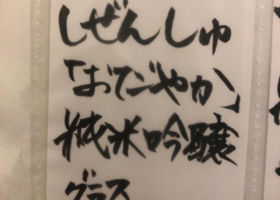 しぜんしゅ
「おだやか」
純米吟醸
グラス